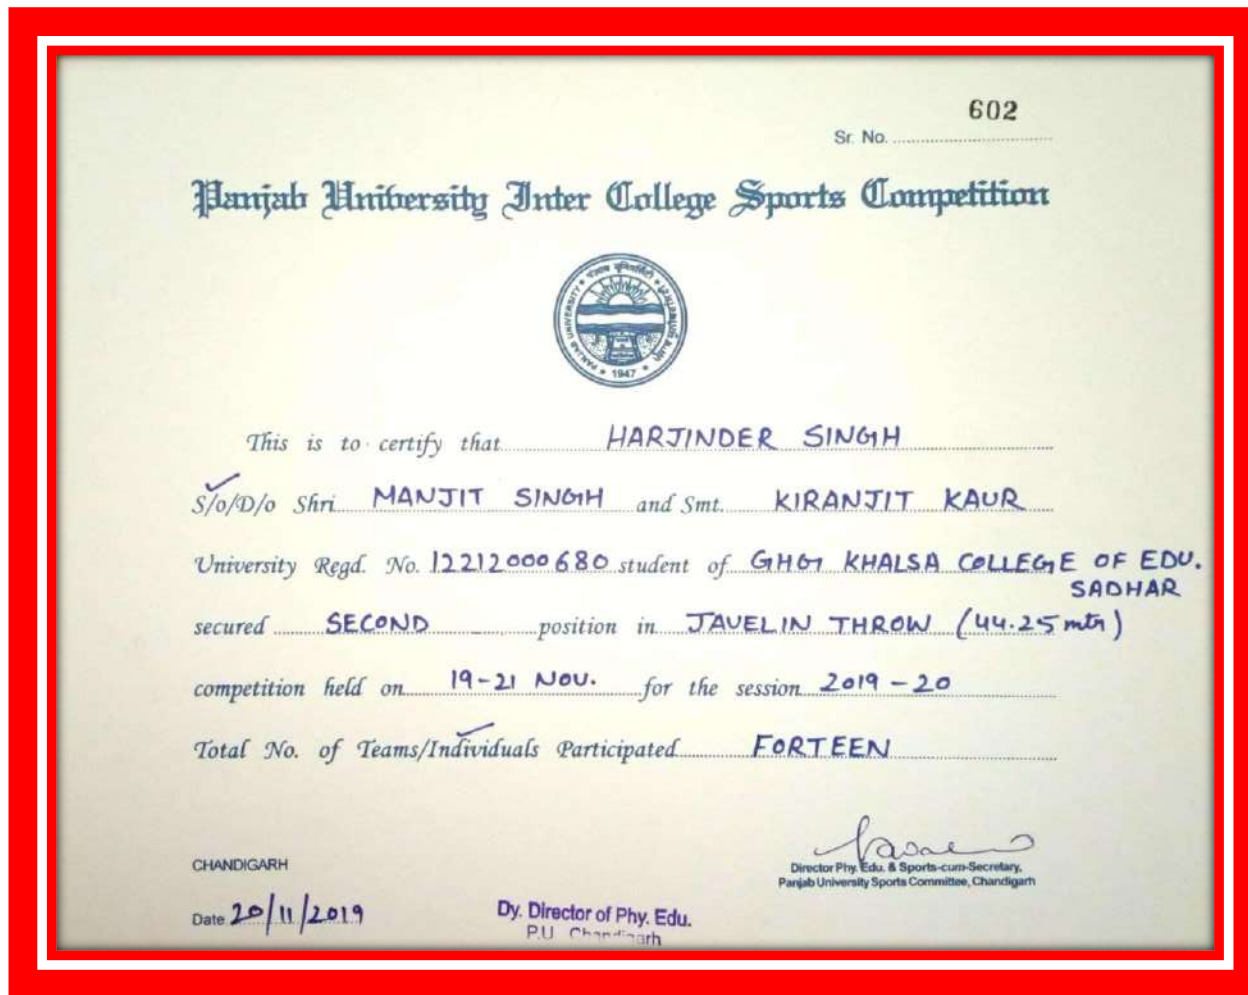 602
Sr. No.
Panjab University Inter College Sports Competition
PANJAB UNIVERSITY
1947
This is to certify that HARJINDER SINGH
S/o/D/o Shri MANJIT SINGH and Smt. KIRANJIT KAUR
University Regd. No. 12212000680 student of GHG KHALSA COLLEGE OF EDU.
SADHAR
secured SECOND position in JAVELIN THROW (44.25 mtr)
competition held on 19-21 NOV. for the session 2019-20
Total No. of Teams/Individuals Participated FORTEEN
CHANDIGARH
Director Phy. Edu. & Sports-cum-Secretary,
Panjab University Sports Committee, Chandigarh
Date 20/11/2019
Dy. Director of Phy. Edu.
P.U. Chandigarh